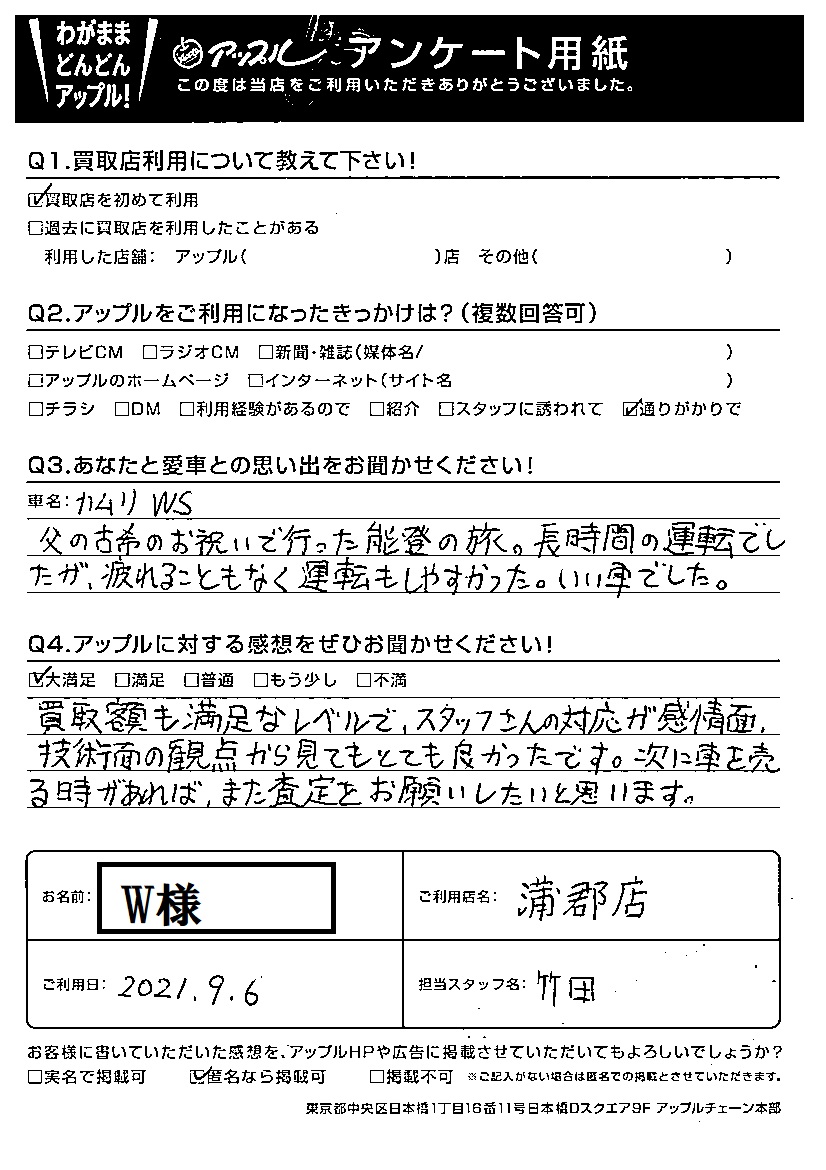 わがまま
どんどん
アップル!
アップル アンケート用紙
この度は当店をご利用いただきありがとうございました。
Q1.買取店利用について教えて下さい!
☑買取店を初めて利用
□過去に買取店を利用したことがある
利用した店舗: アップル( )店 その他( )
Q2.アップルをご利用になったきっかけは?(複数回答可)
□テレビCM □ラジオCM □新聞・雑誌(媒体名/ )
□アップルのホームページ □インターネット(サイト名 )
□チラシ □DM □利用経験があるので □紹介 □スタッフに誘われて ☑通りがかりで
Q3.あなたと愛車との思い出をお聞かせください!
車名:カムリ WS
父の古希のお祝いで行った能登の旅。長時間の運転でし
たが、疲れることもなく運転もしやすかった。いい車でした。
Q4.アップルに対する感想をぜひお聞かせください!
☑大満足 □満足 □普通 □もう少し □不満
買取額も満足なレベルで、スタッフさんの対応が感情面、
技術面の観点から見てもとても良かったです。次に車を売
る時があれば、また査定をお願いしたいと思います。
お名前: W様
ご利用店名: 蒲郡店
ご利用日: 2021.9.6
担当スタッフ名: 竹田
お客様に書いていただいた感想を、アップルHPや広告に掲載させていただいてもよろしいでしょうか?
□実名で掲載可 ☑匿名なら掲載可 □掲載不可 ※ご記入がない場合は匿名での掲載とさせていただきます。
東京都中央区日本橋1丁目16番11号日本橋Dスクエア9F アップルチェーン本部